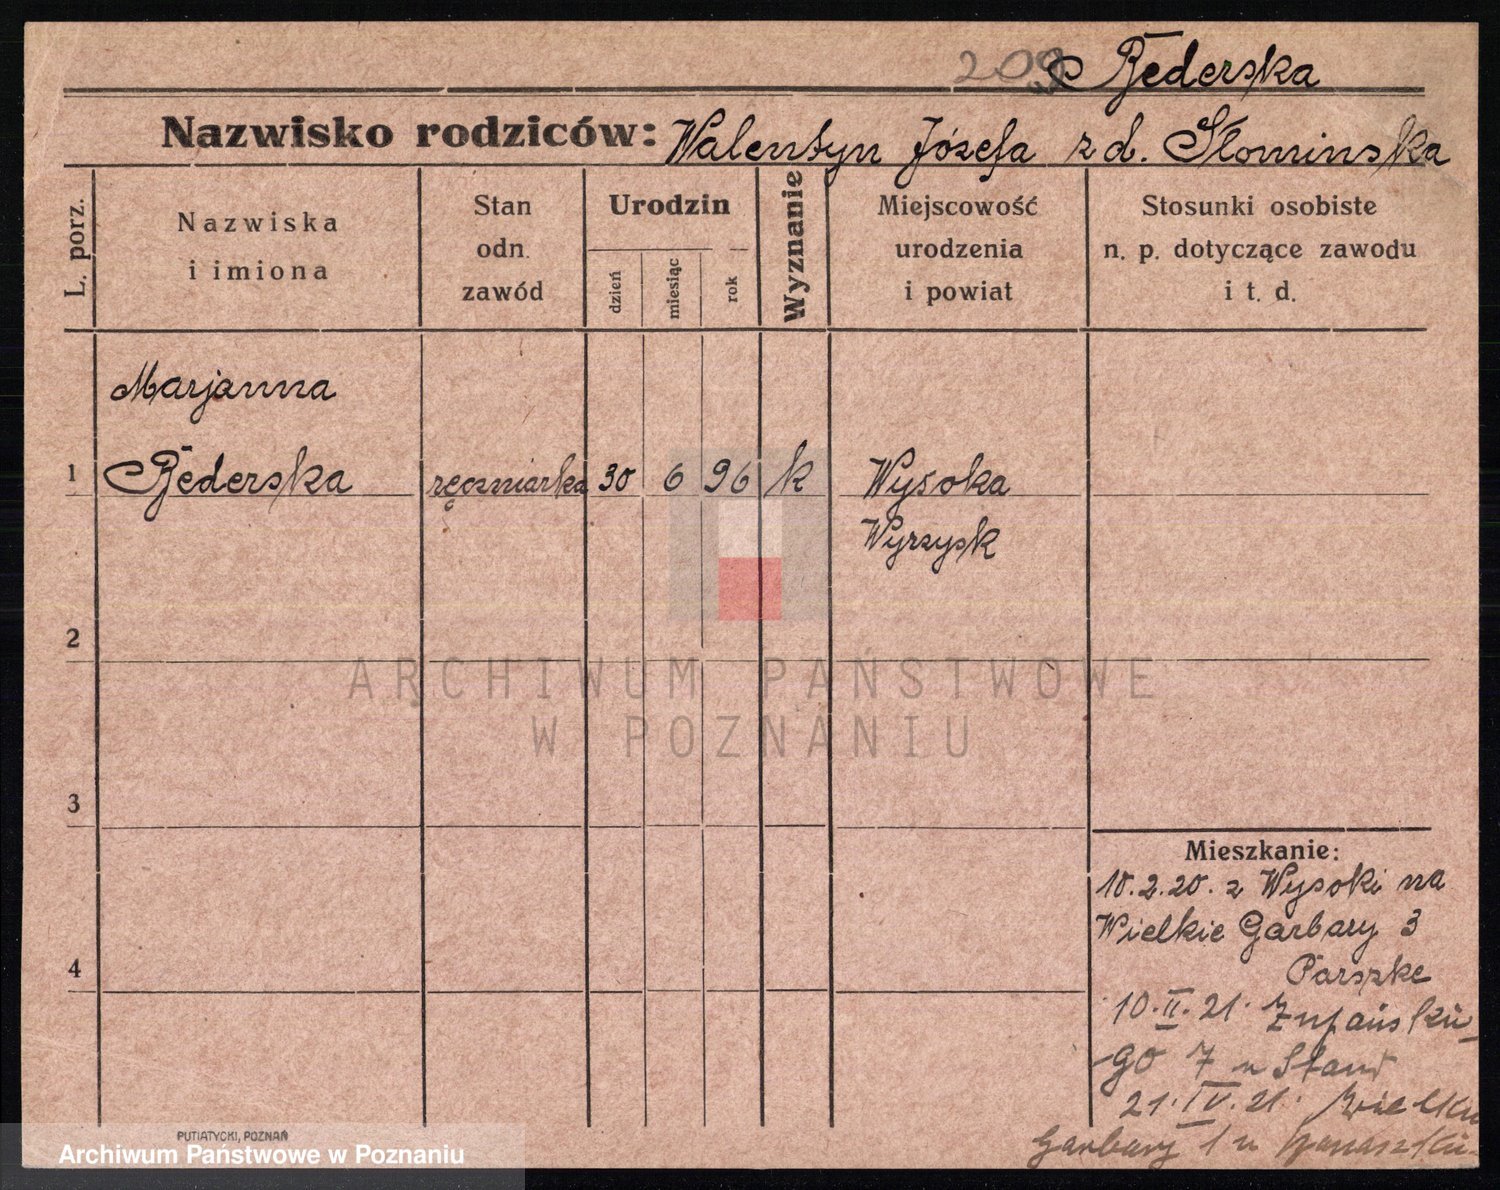 209 Bederska
Nazwisko rodziców: Walentyn Józefa z d. Słominska
L. porz.
Nazwiska
i imiona
Stan
odn.
zawód
Urodzin
dzień
miesiąc
rok
Wyznanie
Miejscowość
urodzenia
i powiat
Stosunki osobiste
n. p. dotyczące zawodu
i t. d.
Marjanna
1 Bederska ręczniarka 30 6 96 k Wysoka
Wyrzysk
2
ARCHIWUM PAŃSTWOWE
W POZNANIU
3
Mieszkanie:
10.2.20. z Wysoki na
Wielkie Garbary 3
4
10.II.21.
go 7 u
21.IV.21. Wielkie
Garbary 1 u
PUTIATYCKI, POZNAŃ
Archiwum Państwowe w Poznaniu